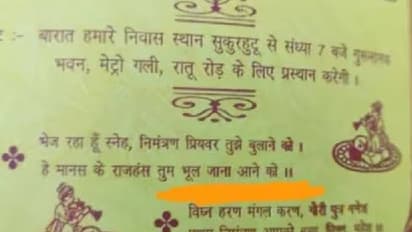 :- बारात हमारे निवास स्थान सुकुरहुटू से संध्या 7 बजे गुरुनानक
भवन, मेट्रो गली, रातू रोड़ के लिए प्रस्थान करेगी ।
भेज रहा हूँ स्नेह, निमंत्रण प्रियवर तुझे बुलाने को ।
हे मानस के राजहंस तुम भूल जाना आने को ।।
विघ्न हरण मंगल करण, पुत्र गनेश
निमंत्रण आपको